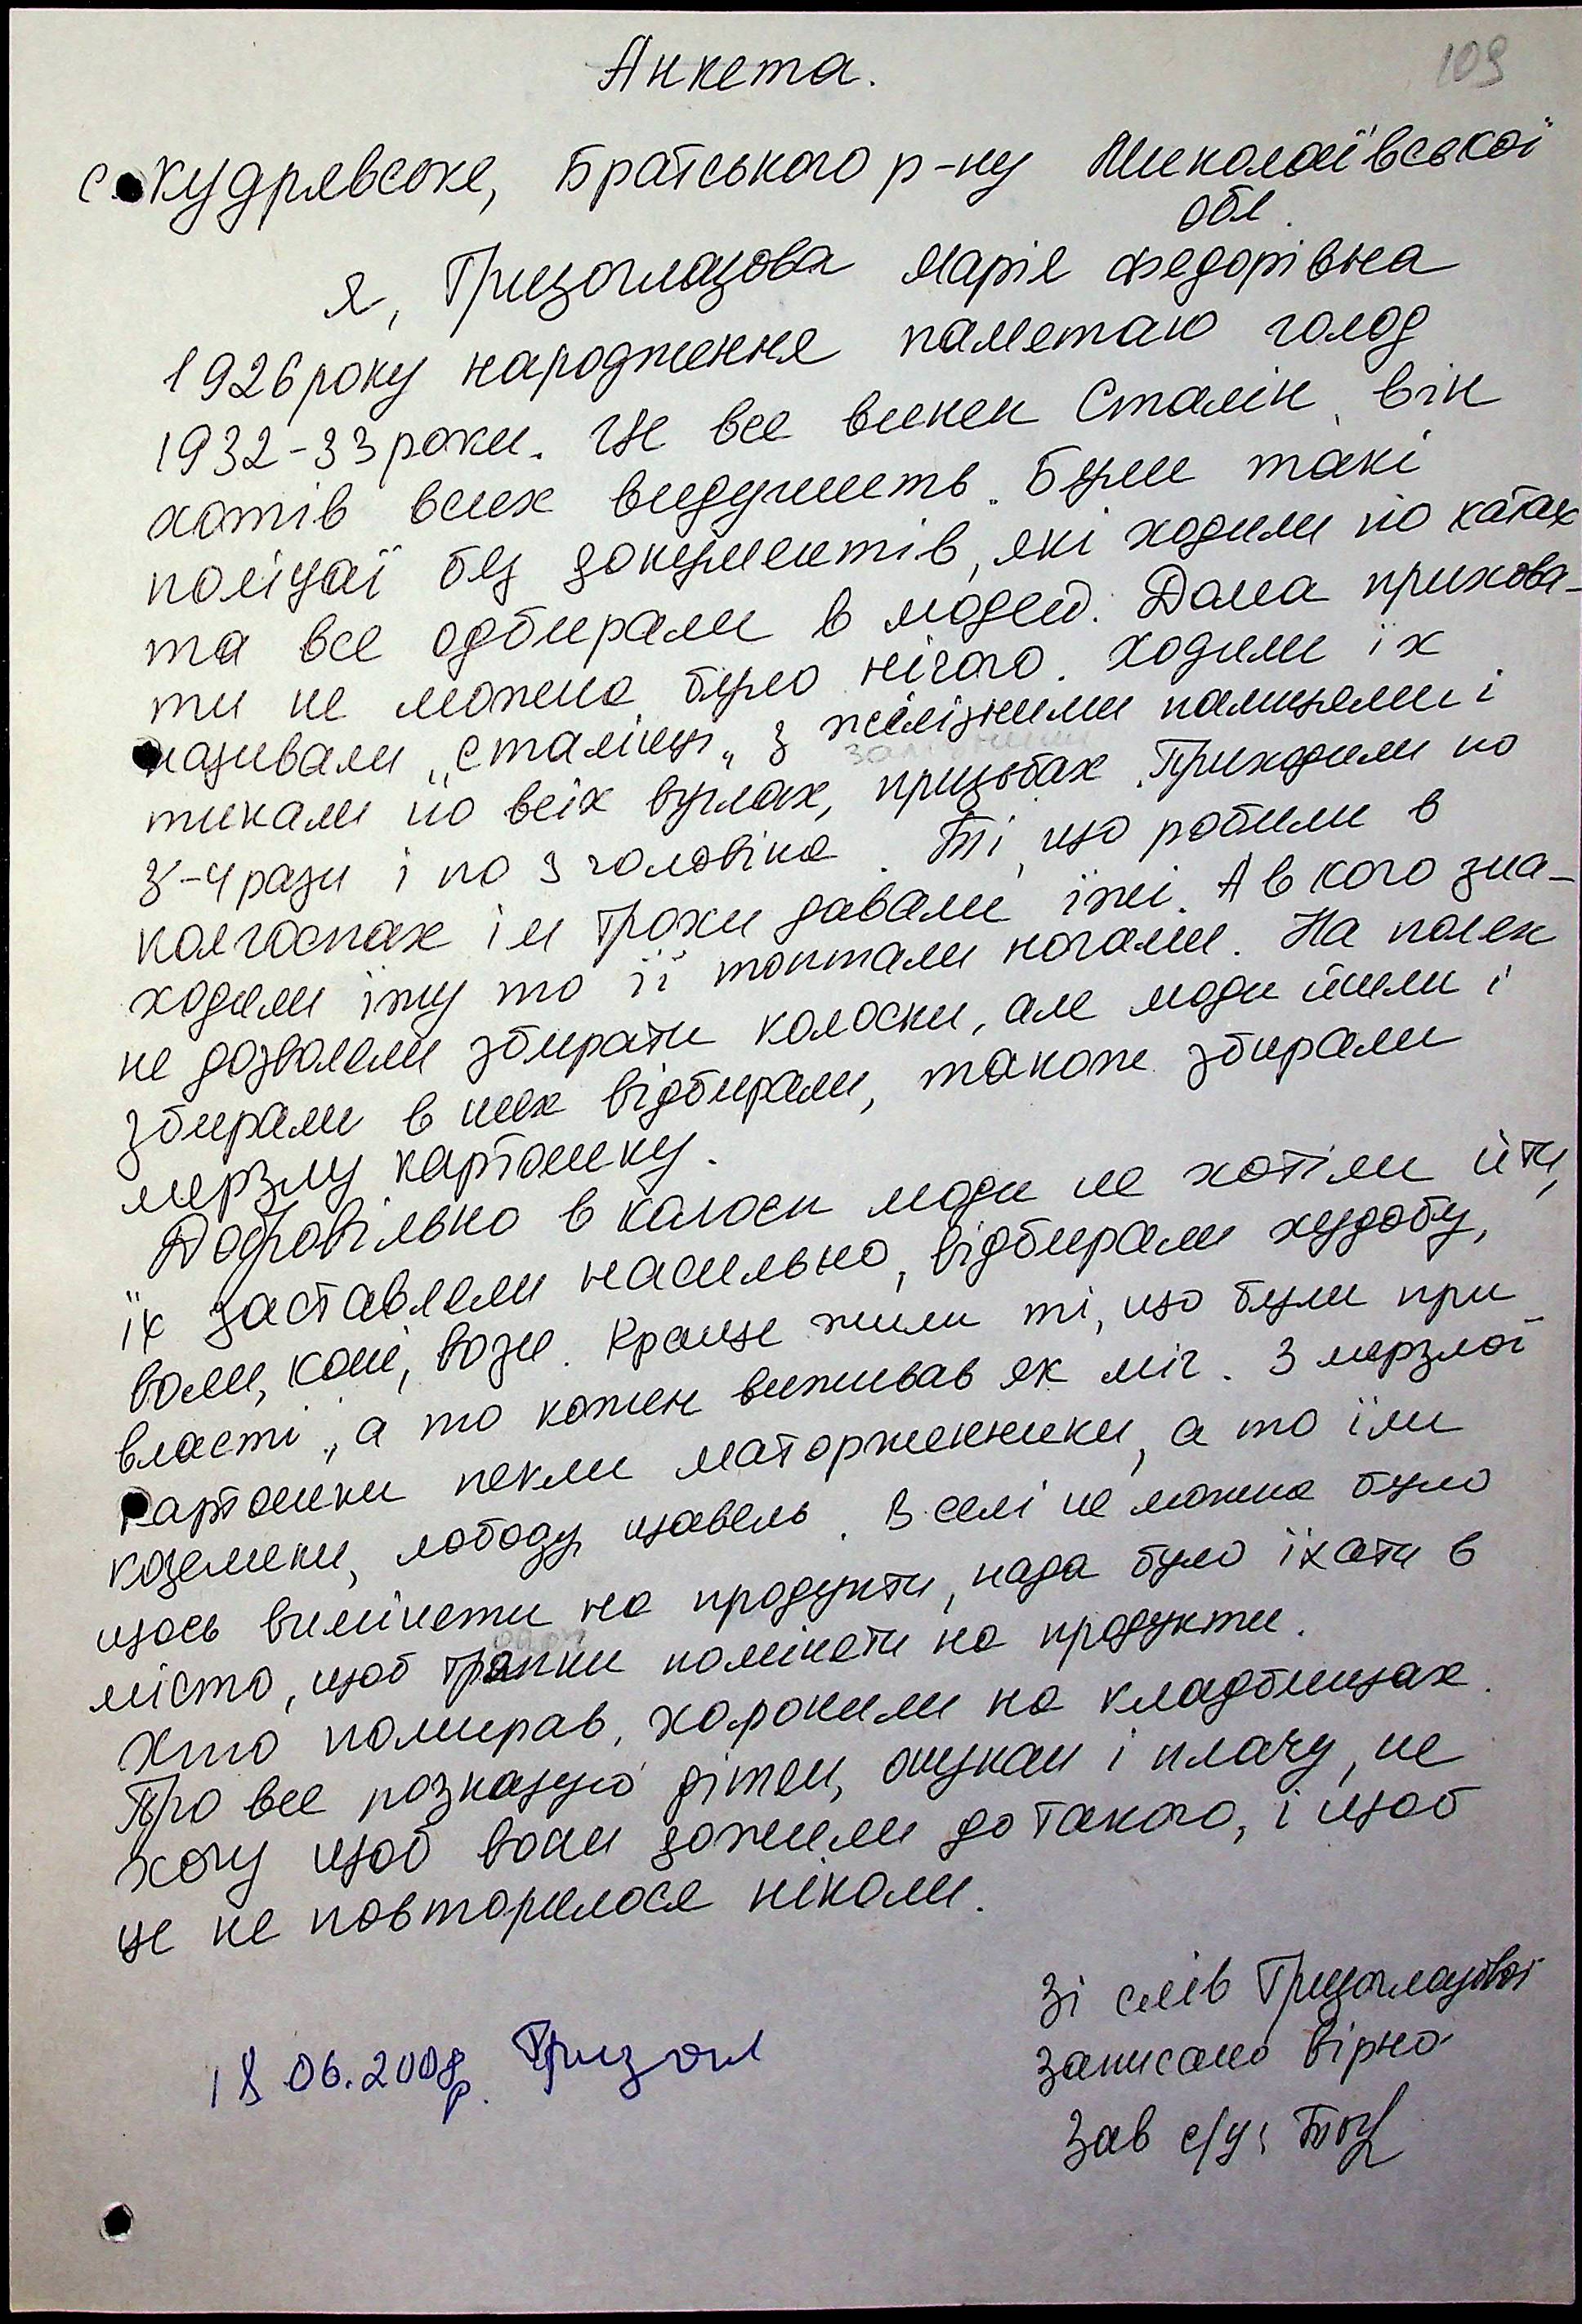 109
Анкета.
с. Кудрявське, Братського р-ну Миколаївської
обл.
Я, Гризоглазова Марія Федорівна
1926 року народження паметаю голод
1932-33 роки. Це все винен Сталін, він
хотів всих видушить. Були такі
поліцаї без документів, які ходили по хатах
та все одбирали в людей. Дома прихова-
ти не можна було нічого. Ходили їх
називали „сталінці„ з желізними палицями і
тикали по всіх вуглах, призьбах. Приходили по
3-4 рази і по 3 чоловіка. Ті, що робили в
колгоспах їм трохи давали їжі. А в кого зна-
ходили їжу то її топтали ногами. На полях
не дозволяли збирати колоски, але люди йшли і
збирали в них відбирали, також збирали
мерзлу картошку.
Добровільно в колгосп люди не хотіли йти,
їх заставляли насильно, відбирали худобу,
воли, коні, вози. Краще жили ті, що були при
власті, а то кожен виживав як міг. З мерзлої
картошки пекли маторженники, а то їли
козелики, лободу, щавель. В селі не можна було
щось виміняти на продукти, нада було їхати в
місто, щоб тряпки поміняти на продукти.
Хто помирав, хоронили на кладбищах.
Про все розказую дітям, онукам і плачу, не
хочу щоб вони дожили до такого, і щоб
це не повторилося ніколи.
Зі слів Гризоглазової
записано вірно
18.06.2008р. Гризогл
Зав с/к